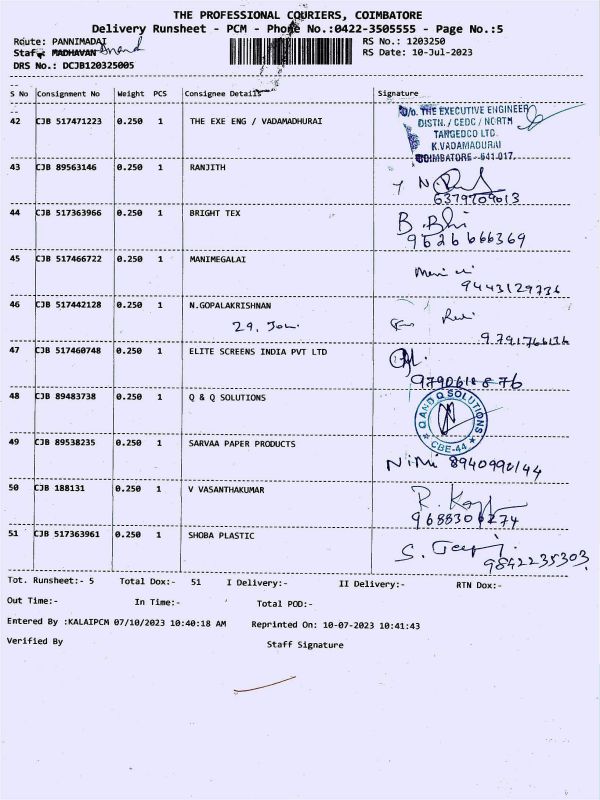 THE PROFESSIONAL COURIERS, COIMBATORE
Delivery Runsheet - PCM - Phone No.:0422-3505555 - Page No.:5
Route: PANNIMADAI RS No.: 1203250
Staff: MADHAVAN Anand RS Date: 10-Jul-2023
DRS No.: DCJB120325005
S No Consignment No Weight PCS Consignee Details Signature
42 CJB 517471223 0.250 1 THE EXE ENG / VADAMADHURAI
O/o. THE EXECUTIVE ENGINEER
DISTN. / CEDC / NORTH
TANGEDCO LTD.
K.VADAMADURAI
COIMBATORE - 641 017.
43 CJB 89563146 0.250 1 RANJITH
6379709013
44 CJB 517363966 0.250 1 BRIGHT TEX
9626666369
45 CJB 517466722 0.250 1 MANIMEGALAI
9443129736
46 CJB 517442128 0.250 1 N.GOPALAKRISHNAN
9791766136
47 CJB 517460748 0.250 1 ELITE SCREENS INDIA PVT LTD
9790618876
48 CJB 89483738 0.250 1 Q & Q SOLUTIONS
Q AND Q SOLUTIONS
CBE-44
49 CJB 89538235 0.250 1 SARVAA PAPER PRODUCTS
Nimi 8940990144
50 CJB 188131 0.250 1 V VASANTHAKUMAR
9688306274
51 CJB 517363961 0.250 1 SHOBA PLASTIC
9842235303
Tot. Runsheet:- 5 Total Dox:- 51 I Delivery:- II Delivery:- RTN Dox:-
Out Time:- In Time:- Total POD:-
Entered By :KALAIPCM 07/10/2023 10:40:18 AM Reprinted On: 10-07-2023 10:41:43
Verified By Staff Signature